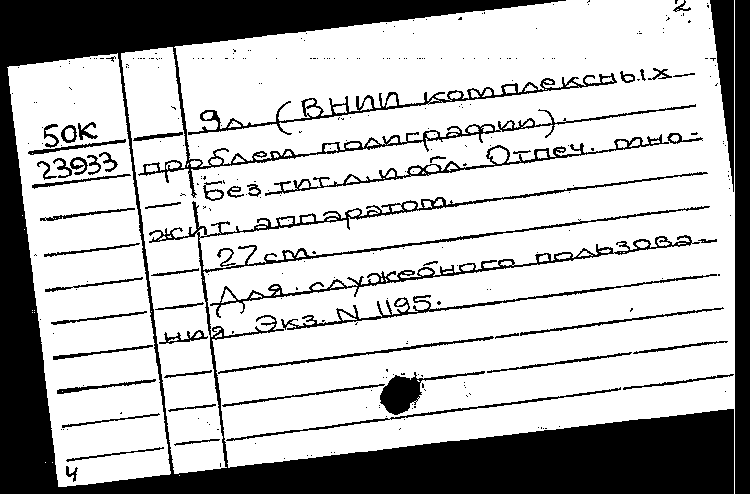 2
9л. (ВНИИ комплексных
50К
23933 проблем полиграфии).
Без тит. л. и обл. Отпеч. мно-
жит. аппаратом.
27 см.
Для служебного пользова-
ния. Экз. N 1195.
4